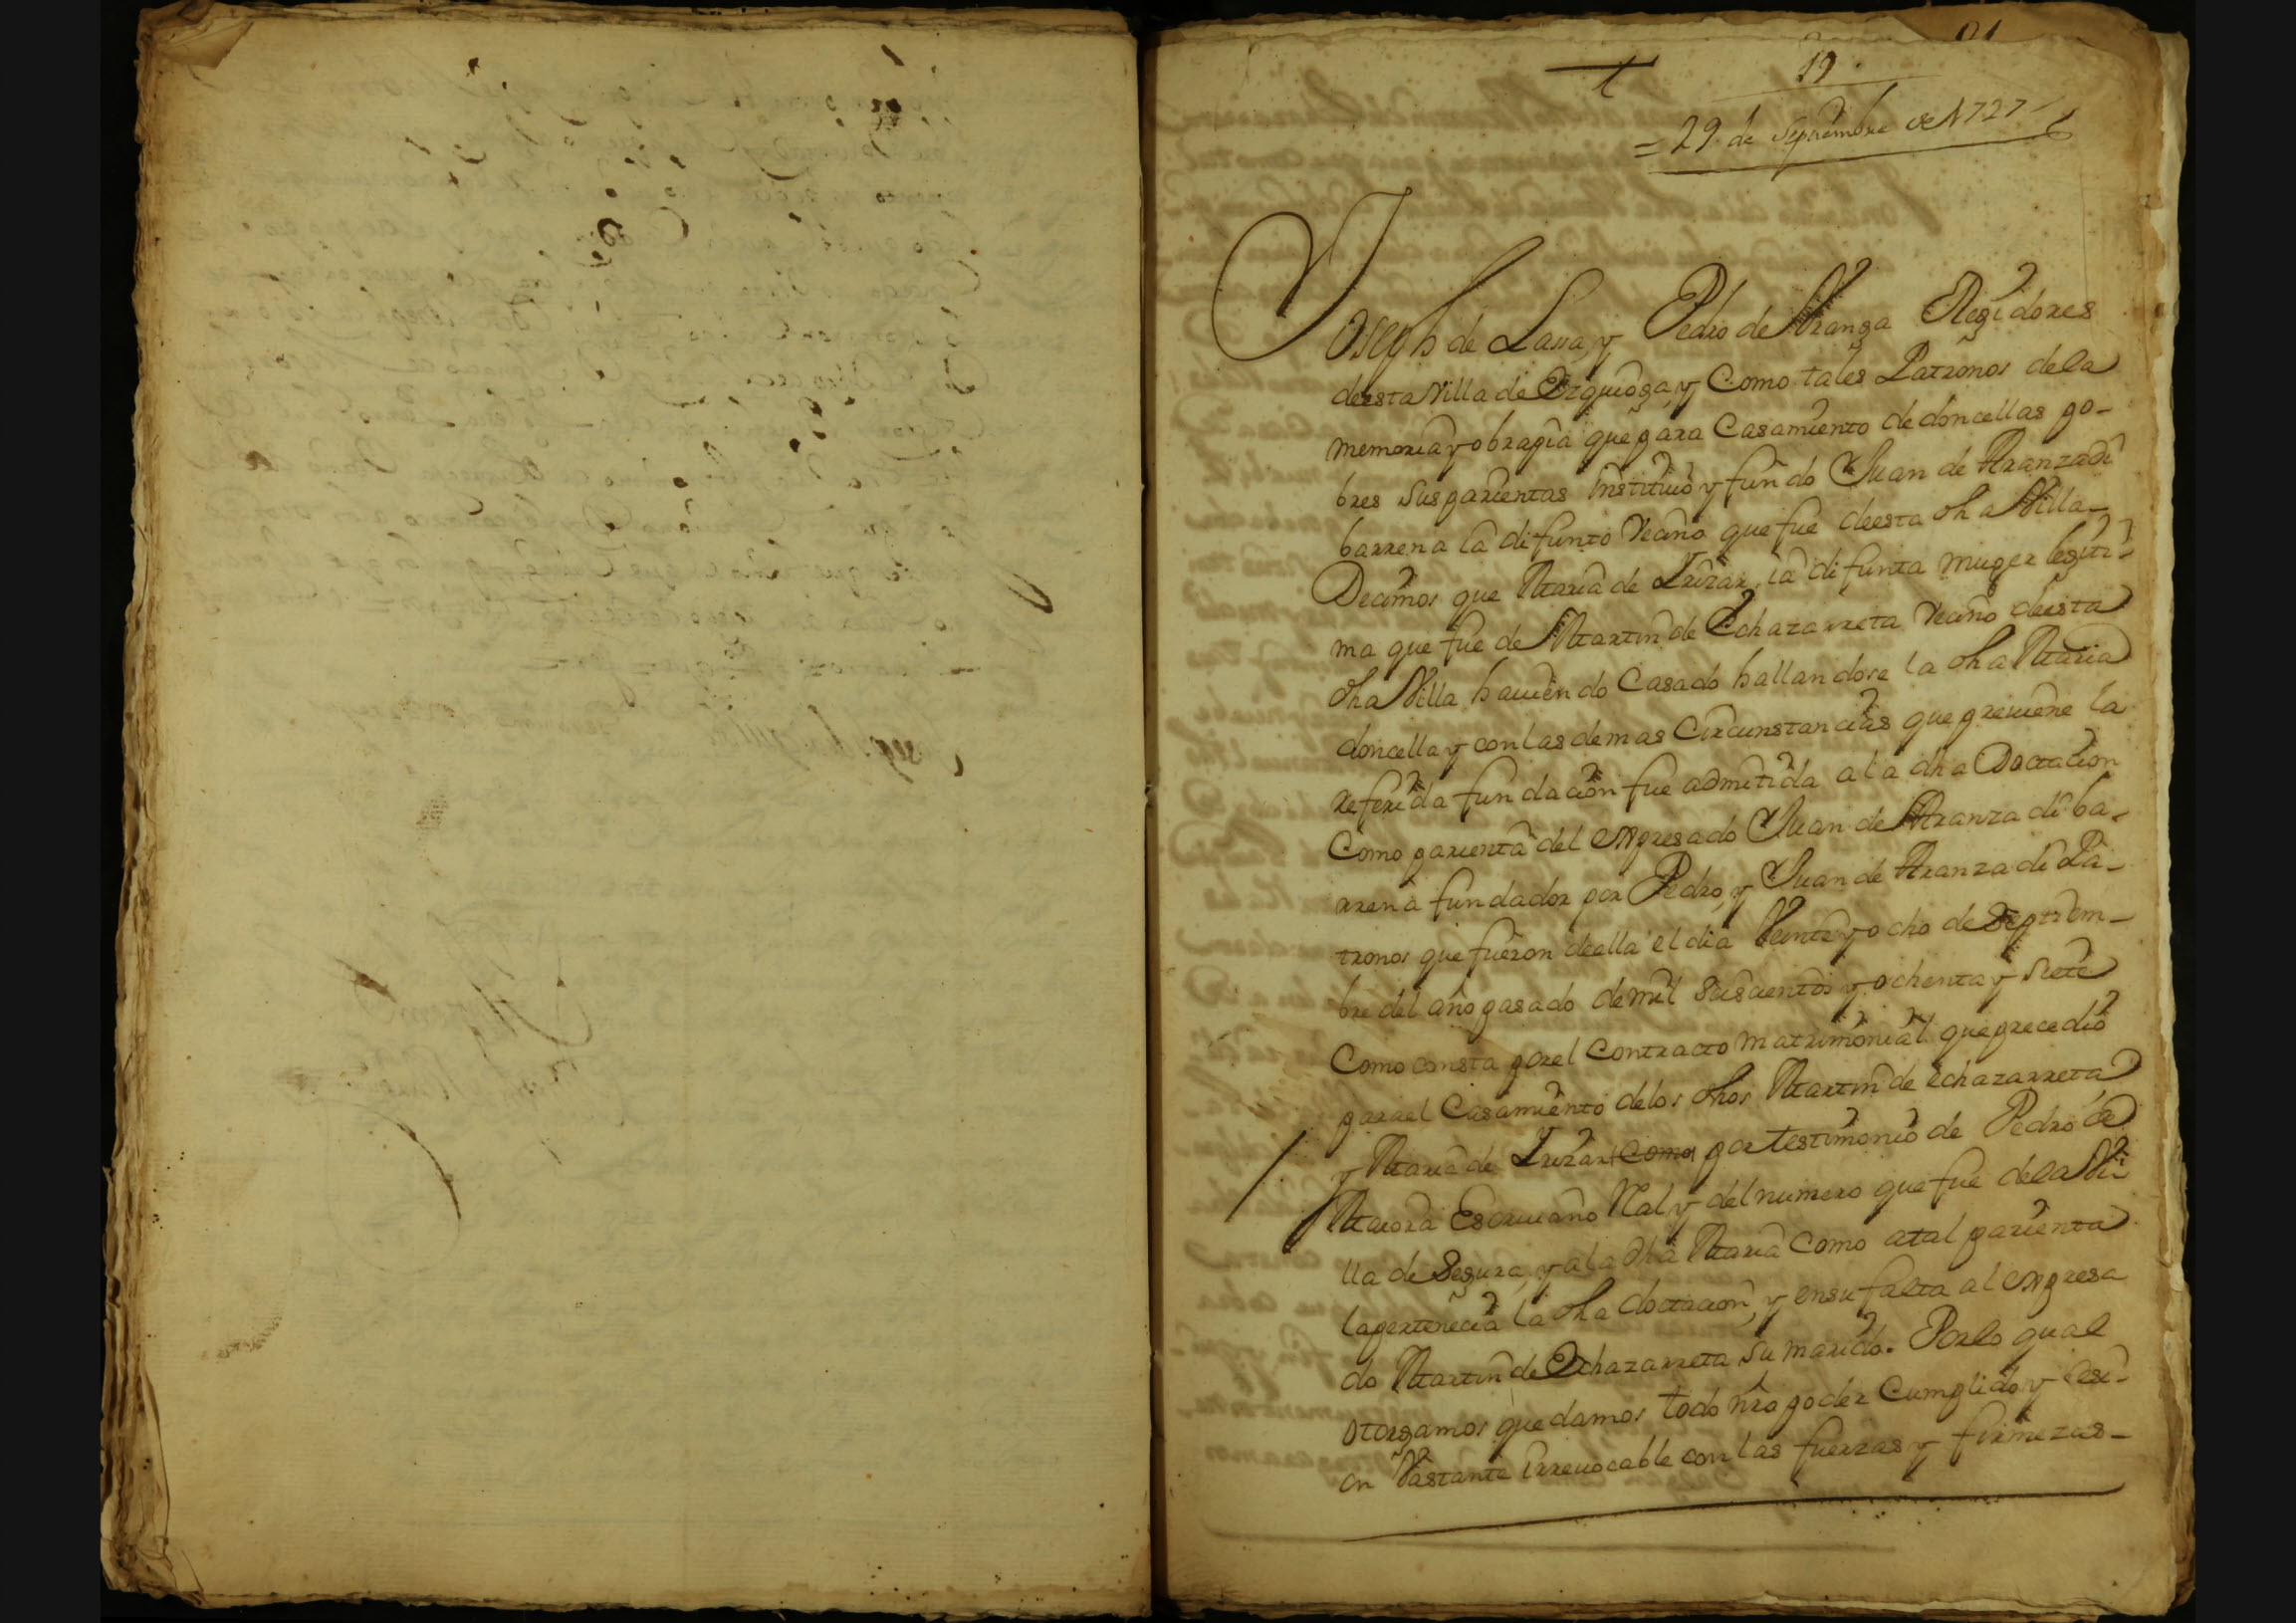 19
= 29 de Septiembre de 1727
Joseph de Lasa, y Pedro de Aranga Regidores
deesta Villa de Ezquioga, y Como tales Patronos dela
memoria y obrapia que para Casamiento de doncellas po-
bres sus parientas Instituio y fundo Juan de Aranzadi
barrena ia difunto Vecino que fue deesta dha Villa-
Decimos que Maria de Irizar, ia difunta muger legiti-
ma que fue de Martin de Echazarreta Vecino deesta
dha Villa haviendo Casado hallandose la dha Maria
doncella y con las demas Circunstancias que previene la
referida fundacion fue admitida a la dha Doctacion
Como parienta del expresado Juan de Aranzadi ba-
rrena fundador por Pedro, y Juan de Aranzadi Pa-
tronos que fueron deella el dia Veinte y ocho de Septiem-
bre del año pasado de mil Seiscientos y ochenta y siete
Como consta por el Contracto matrimonial que precedio
para el Casamiento de los dhos Martin de echazarreta
y Maria de Irizar como por testimonio de Pedro de
Maiora Escriuano Ral y del numero que fue dela Vi-
lla de Segura, y a la dha Maria Como atal parienta
la pertinecia la dha doctacion, y en su falta al expresa
do Martin de Echazarreta su marido. Por lo qual
otorgamos que damos todo nro poder Cumplido y Cesi-
on Vastante irreuocable con las fuerzas y firmezas-